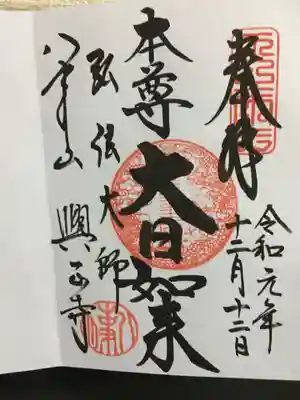 奉拝
令和元年
十二月十二日
本尊
大日如来
弘法大師
八事山 興正寺